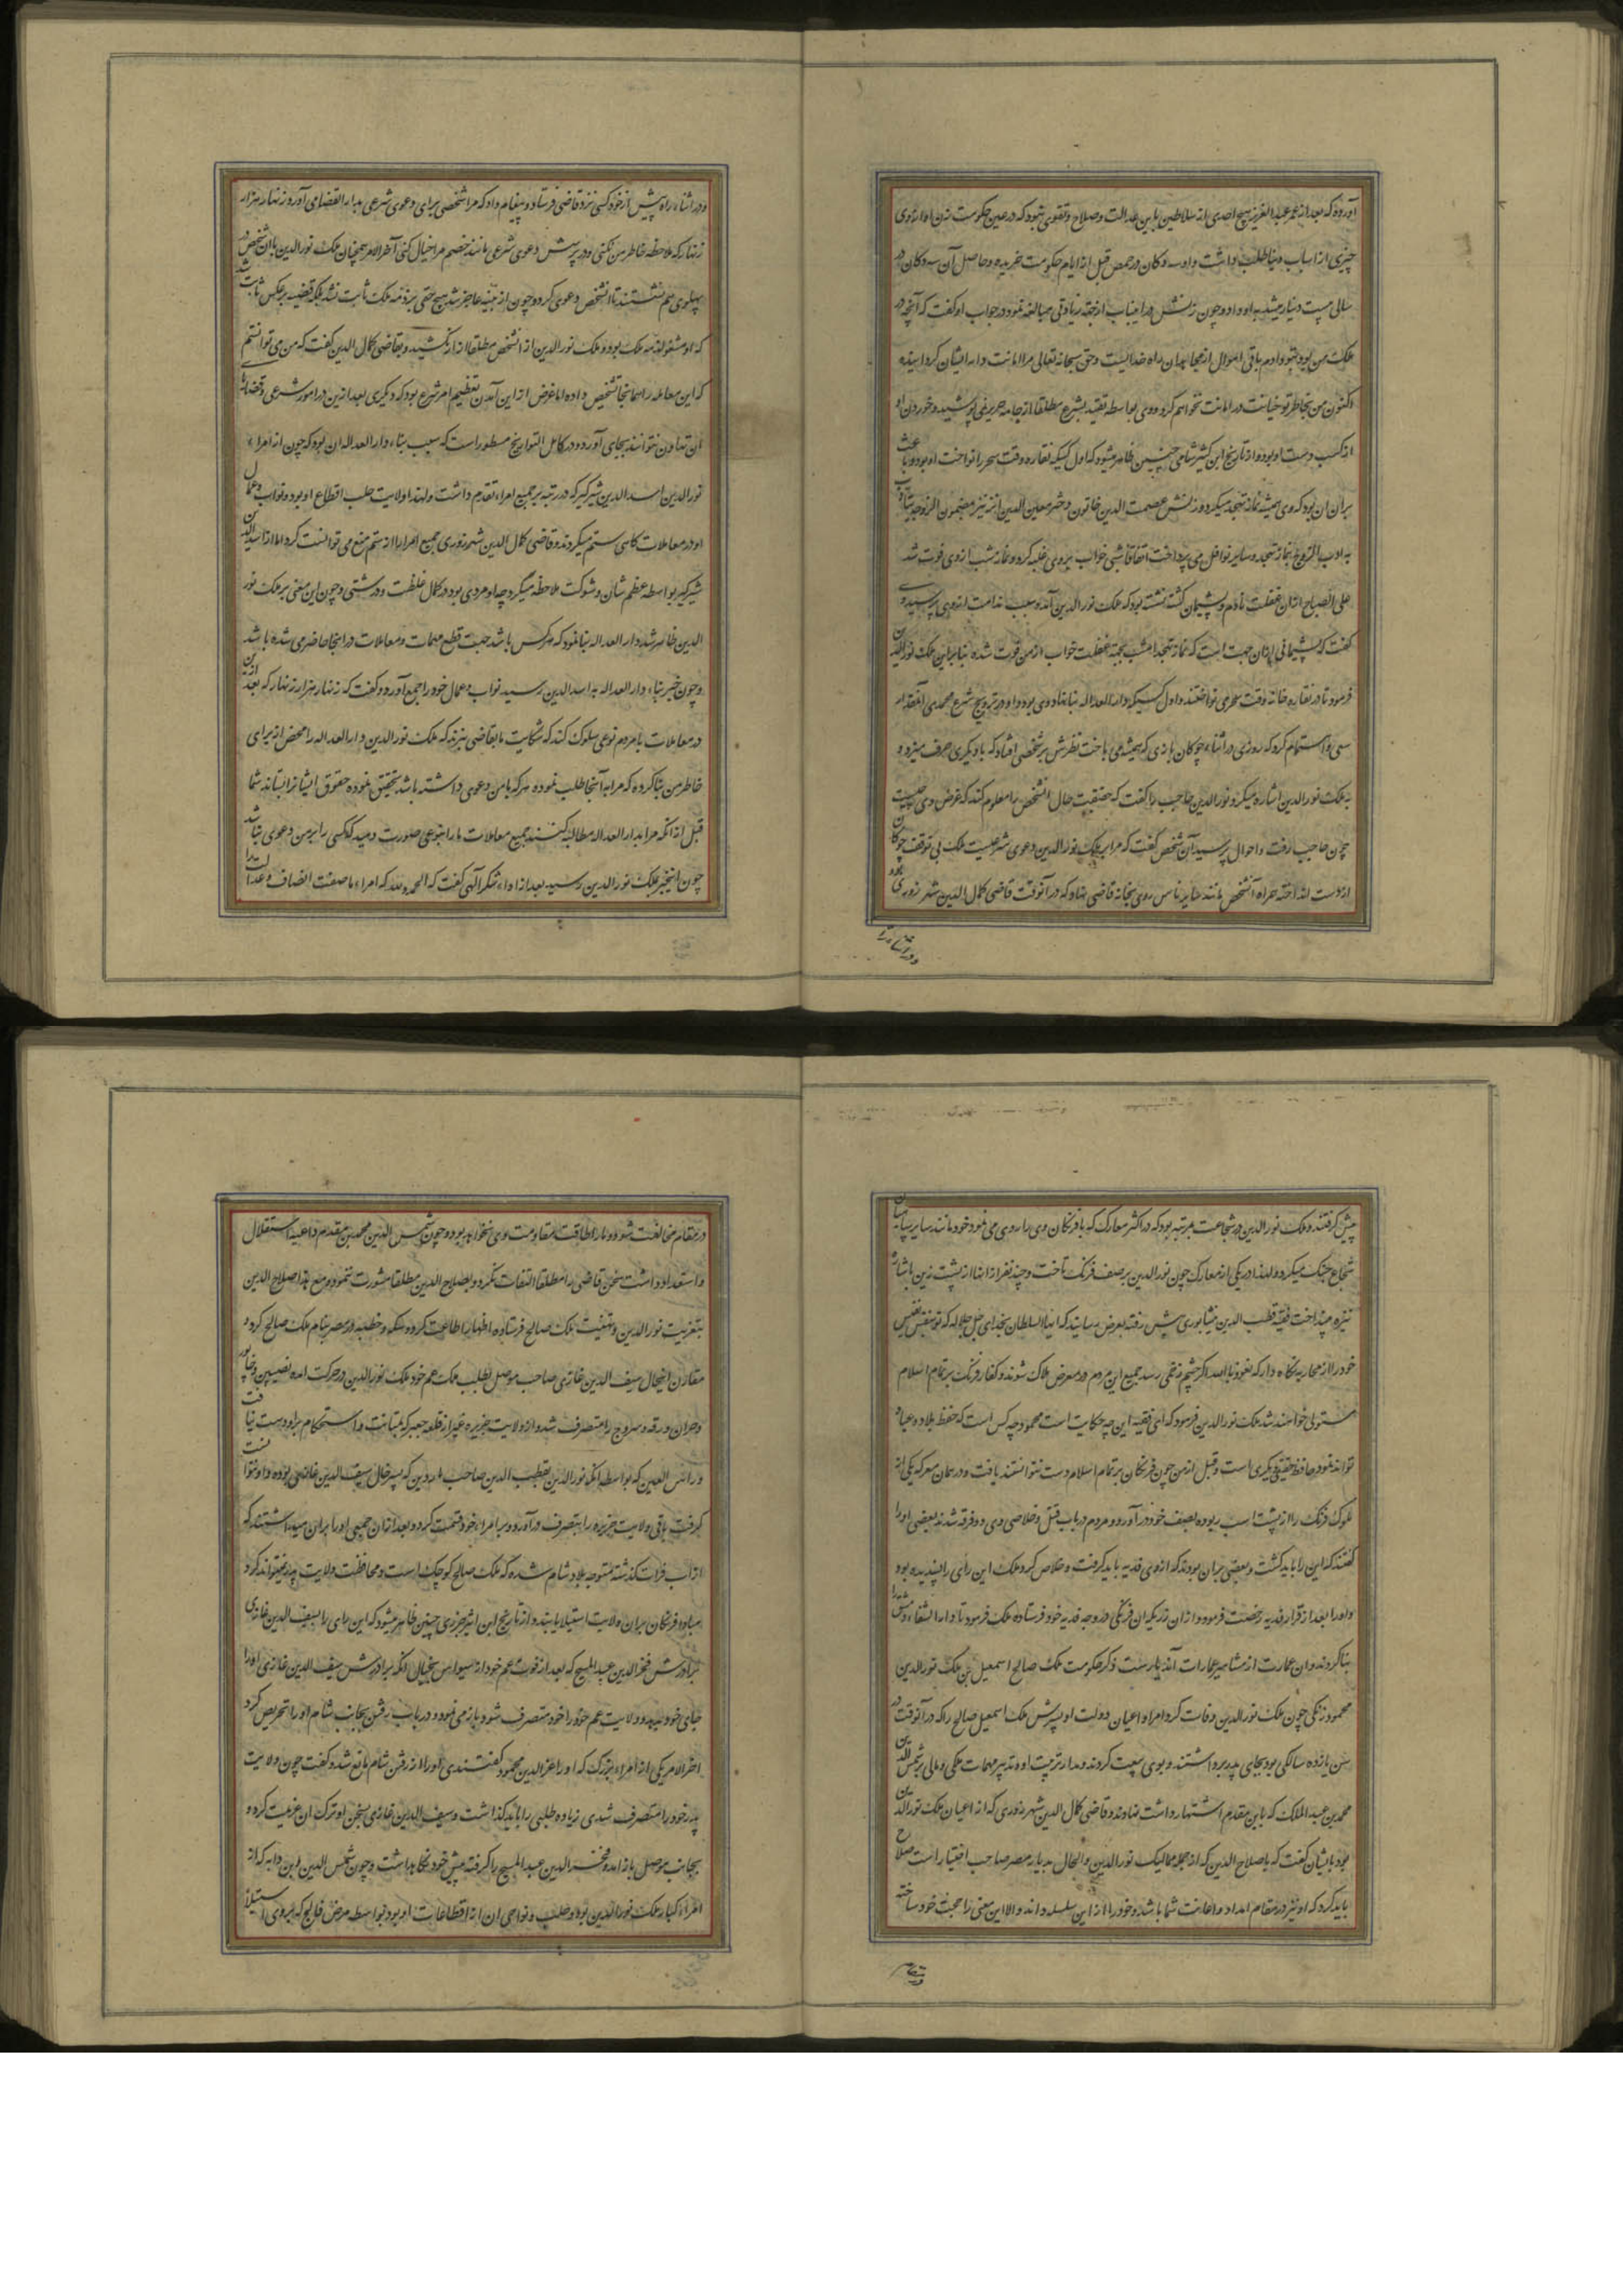 آورده که بعد از عمر عبد العزیز هیچ احدی از سلاطین باین عدالت و صلاح و تقوی نبود که در عین حکومت زن او از وی
چیزی از اسباب دنیا طلب داشت و او سه دکان در حمص قبل از ایام حکومت خریده و حاصل آن سه دکان در
سالی بیست دینار میشد به او داد و چون زنش در این باب از جهة زیادتی مبالغه نمود در جواب او گفت که آنچه در
ملک من بود بتو دادم باقی اموال از مجاهدان راه خداست و حق سبحانه تعالی مرا امانت دار ایشان گردانیده
اکنون من بخاطر تو خیانت در امانت نخواهم کرد و وی بواسطه تقید بشرع مطلقا از جامه حریر نمی پوشید و خوردن او
از کسب دست او بود و از تاریخ ابن کثیر شامی چنین ظاهر میشود که اول کسیکه نقاره وقت سحر را نواخت او بود و باعث
بران ان بود که وی همیشه نماز تهجد میکرد و زنش عصمت الدین خاتون دختر معین الدین انز نیز بمضمون
به ادب الزوج بنماز تهجد و سایر نوافل می پرداخت اتفاقا شبی خواب بروی غلبه کرد و نماز شب از وی فوت شد
علی الصباح ازان غفلت نادم و پشیمان گشته نشسته بود که ملک نور الدین آمد و سبب ندامت از وی پرسید وی
گفت که پشیمانی ازان جهت است که نماز تهجد امشب بجهة غفلت خواب از من فوت شده بنابراین ملک نور الدین
فرمود تا در نقاره خانه وقت سحر می نواختند و اول کسیکه دار العداله بنا نهاد وی بود و او در ترویج شرع محمدی آنقدر
سعی و اهتمام کرد که روزی در اثناء چوکان بازی که همیشه می باخت نظرش بر شخصی افتاد که با دیکری حرف میزد و
به ملک نور الدین اشاره میکرد نور الدین حاجب را گفت که حقیقت حال انشخص را معلوم کند که غرض وی چیست
چون حاجب رفت و احوال پرسید آن شخص گفت که مرا بر ملک نور الدین دعوی شرعیست ملک بی توقف چوکان
از دست انداخته همراه آنشخص مانند سایر ناس روی بخانه قاضی نهاد که در آنوقت قاضی کمال الدین شهر زوری بود
و در اثناء راه
و در اثناء راه پیش از خود کسی نزد قاضی فرستاد و پیغام داد که مرا شخصی برای دعوی شرعی بدار القضا می آورد زنهار هزار
زنهار که ملاحظه خاطر من نکنی و در پرسش دعوی شرعی مانند خصم مرا خیال کنی آخر الامر همچنان ملک نور الدین با ان شخص در
پهلوی هم نشستند تا انشخص دعوی کرد و چون از بینه عاجز شد هیچ حقی بر ذمه ملک ثابت نشد بلکه قضیه بر عکس ثابت شد
که او مشغول ذمه ملک بود و ملک نور الدین از انشخص مطلقا ازار نکشید و بقاضی کمال الدین گفت که من می توانستم
که این معامله را همانجا تشخیص داده اما غرض از این آمدن تعظیم امر شرع بود که دیکری بعد ازین در امور شرعی
ان تهاون نتوانند بجای آورد و در کامل التواریخ مسطور است که سبب بناء دار العداله ان بود که چون از امراء
نور الدین اسد الدین شیرکیر که در رتبه بر جمیع امراء تقدم داشت و لهذا ولایت حلب اقطاع او بود و نواب و عمال
او در معاملات کاهی ستم میکردند و قاضی کمال الدین شهر زوری جمیع امرا را از ستم منع می توانست کرد اما از اسد الدین
شیرکیر بواسطه عظم شان و شوکت ملاحظه میکرد چه او مردی بود در کمال غلظت و درشتی و چون این معنی بر ملک نور
الدین ظاهر شد دار العداله بنا نمود که هر کس باشد جهت قطع مهمات و معاملات در انجا حاضر می شده باشد
و چون خبر بناء دار العداله به اسد الدین رسید نواب و عمال خود را جمع آورد و گفت که زنهار هزار زنهار که بعد ازین
در معاملات بامردم نوعی سلوک کنند که شکایت ما بقاضی نبرند که ملک نور الدین دار العداله را محض از برای
خاطر من بنا کرده که مرا به آنجا طلب نموده هر که با من دعوی داشته باشد تحقیق نموده حقوق ایشانرا بستاند شما
قبل از انکه مرا بدار العداله مطالبه کنند جمیع معاملات ما را بنوعی صورت دهید که کسی را بر من دعوی نباشد
چون اینخبر بملک نور الدین رسید بعد از اداء شکر الهی گفت که الحمد لله که امراء ما صفت انصاف و عدالت را
پیش گرفتند و ملک نور الدین در شجاعت مرتبه بود که در اکثر معارک که با فرنکان وی را روی می نمود خود مانند سایر سپاهیان
شجاع جنگ میکرد و لهذا در یکی از معارک چون نور الدین بر صف فرنک تاخت و چند نفر از انها از پشت زین باشاره
نیزه می انداخت فقیه قطب الدین نیشابوری پیش رفته بعرض رسانید که ایها السلطان بخدای جل جلاله که تو بنفس نفیس
خود را از محاربه نکاه دار که نعوذ بالله اگر چشم زخمی رسد جمیع این مردم در معرض هلاک شوند و کفار فرنک بر تمام اسلام
مستولی خواهند شد ملک نور الدین فرمود که ای فقیه این چه حکایت است محمود چه کس است که حفظ بلاد و عباد
تواند نمود حافظ حقیقی دیکری است و قبل از من چون فرنکان بر تمام اسلام دست نتوانستند یافت و در همان معرکه یکی از
ملوک فرنک را از پشت اسب ربوده بصف خود در آورد و مردم در باب قتل و خلاصی وی دو فرقه شدند بعضی او را
گفتند که این را باید کشت و بعضی بران بودند که از وی فدیه باید گرفت و خلاص کرد ملک این رای را پسندیده بود
و او را بعد از قرار فدیه رخصت فرمود و ازان زریکه ان فرنکی در وجه فدیه خود فرستاده ملک فرمود تا دار الشفاء دمشق را
بنا کردند و ان عمارت از مشاهیر عمارات آن دیارست ذکر حکومت ملک صالح اسمعیل بن ملک نور الدین
محمود زنکی چون ملک نور الدین وفات کرد امرا و اعیان دولت او پسرش ملک اسمعیل صالح را که در آنوقت در
سن یازده سالکی بود بجای پدر برداشتند و بوی بیعت کردند و مدار تربیت او و تدبیر مهمات ملکی و مالی بر شمس الدین
محمد بن عبد الملک که بابن مقدم اشتهار داشت نهادند و قاضی کمال الدین شهر زوری که از اعیان ملک نور الدین
بود بایشان گفت که با صلاح الدین که از جمله ممالیک نور الدین و الحال بدیار مصر صاحب اختیار است صلاح
باید کرد که او نیز در مقام امداد و اعانت شما باشد و خود را از این سلسله داند و الا این معنی را حجت خود ساخته
در مقام
در مقام مخالفت شود و ما را طاقت مقاومت وی نخواهد بود و چون شمس الدین محمد بن مقدم داعیه استقلال
و استعداد داشت سخن قاضی را مطلقا التفات نکرد و بصلاح الدین مطلقا مشورت ننمود و مع هذا صلاح الدین
بتعزیت نور الدین و تهنیت ملک صالح فرستاده اظهار اطاعت کرده سکه و خطبه در مصر بنام ملک صالح کرد و
مقارن اینحال سیف الدین غازی صاحب موصل بطلب ملک عم خود ملک نور الدین در حرکت آمده نصیبین و خابور
و حران و رقه و سروج را متصرف شد و از ولایت جزیره غیر از قلعه جعبر که بمتانت و استحکام براو دست نیافت
و راس العین که بواسطه انکه نور الدین بقطب الدین صاحب ماردین که پسر خال سیف الدین غازی بوده داد نتوانست
گرفت باقی ولایت جزیره را بتصرف در آورد و بر امراء خود قسمت کرد و بعد ازان جمعی او را بران میداشتند که
از آب فرات گذشته متوجه بلاد شام شده که ملک صالح کوچک است و محافظت ولایت پدر نمیتواند کرد
مبادا فرنکان بران ولایت استیلا یابند و از تاریخ ابن اثیر جزری چنین ظاهر میشود که این رای را سیف الدین غازی
فخر الدین عبد المسیح که بعد از فوت عم خود از سیواس بخیال انکه برادرش سیف الدین غازی او را
جای خود نشیند و ولایت عم خود را خود متصرف شود باز می نمود و در باب رفتن بجانب شام او را تحریص کرد
اخر الامر یکی از امراء بزرک که او را عز الدین محمود گفتندی او را از رفتن شام مانع شد و گفت چون ولایت
پدر خود را متصرف شدی زیاده طلبی را باید گذاشت و سیف الدین غازی بسخن او ترک ان عزیمت کرد و
بجانب موصل باز آمد و فخر الدین عبد المسیح را گرفته پیش خود نکاه داشت و چون شمس الدین ابن دایه که از
امراء کبار ملک نور الدین بود و حلب و نواحی ان از اقطاعات او بود بواسطه مرض فالج که بروی استیلا